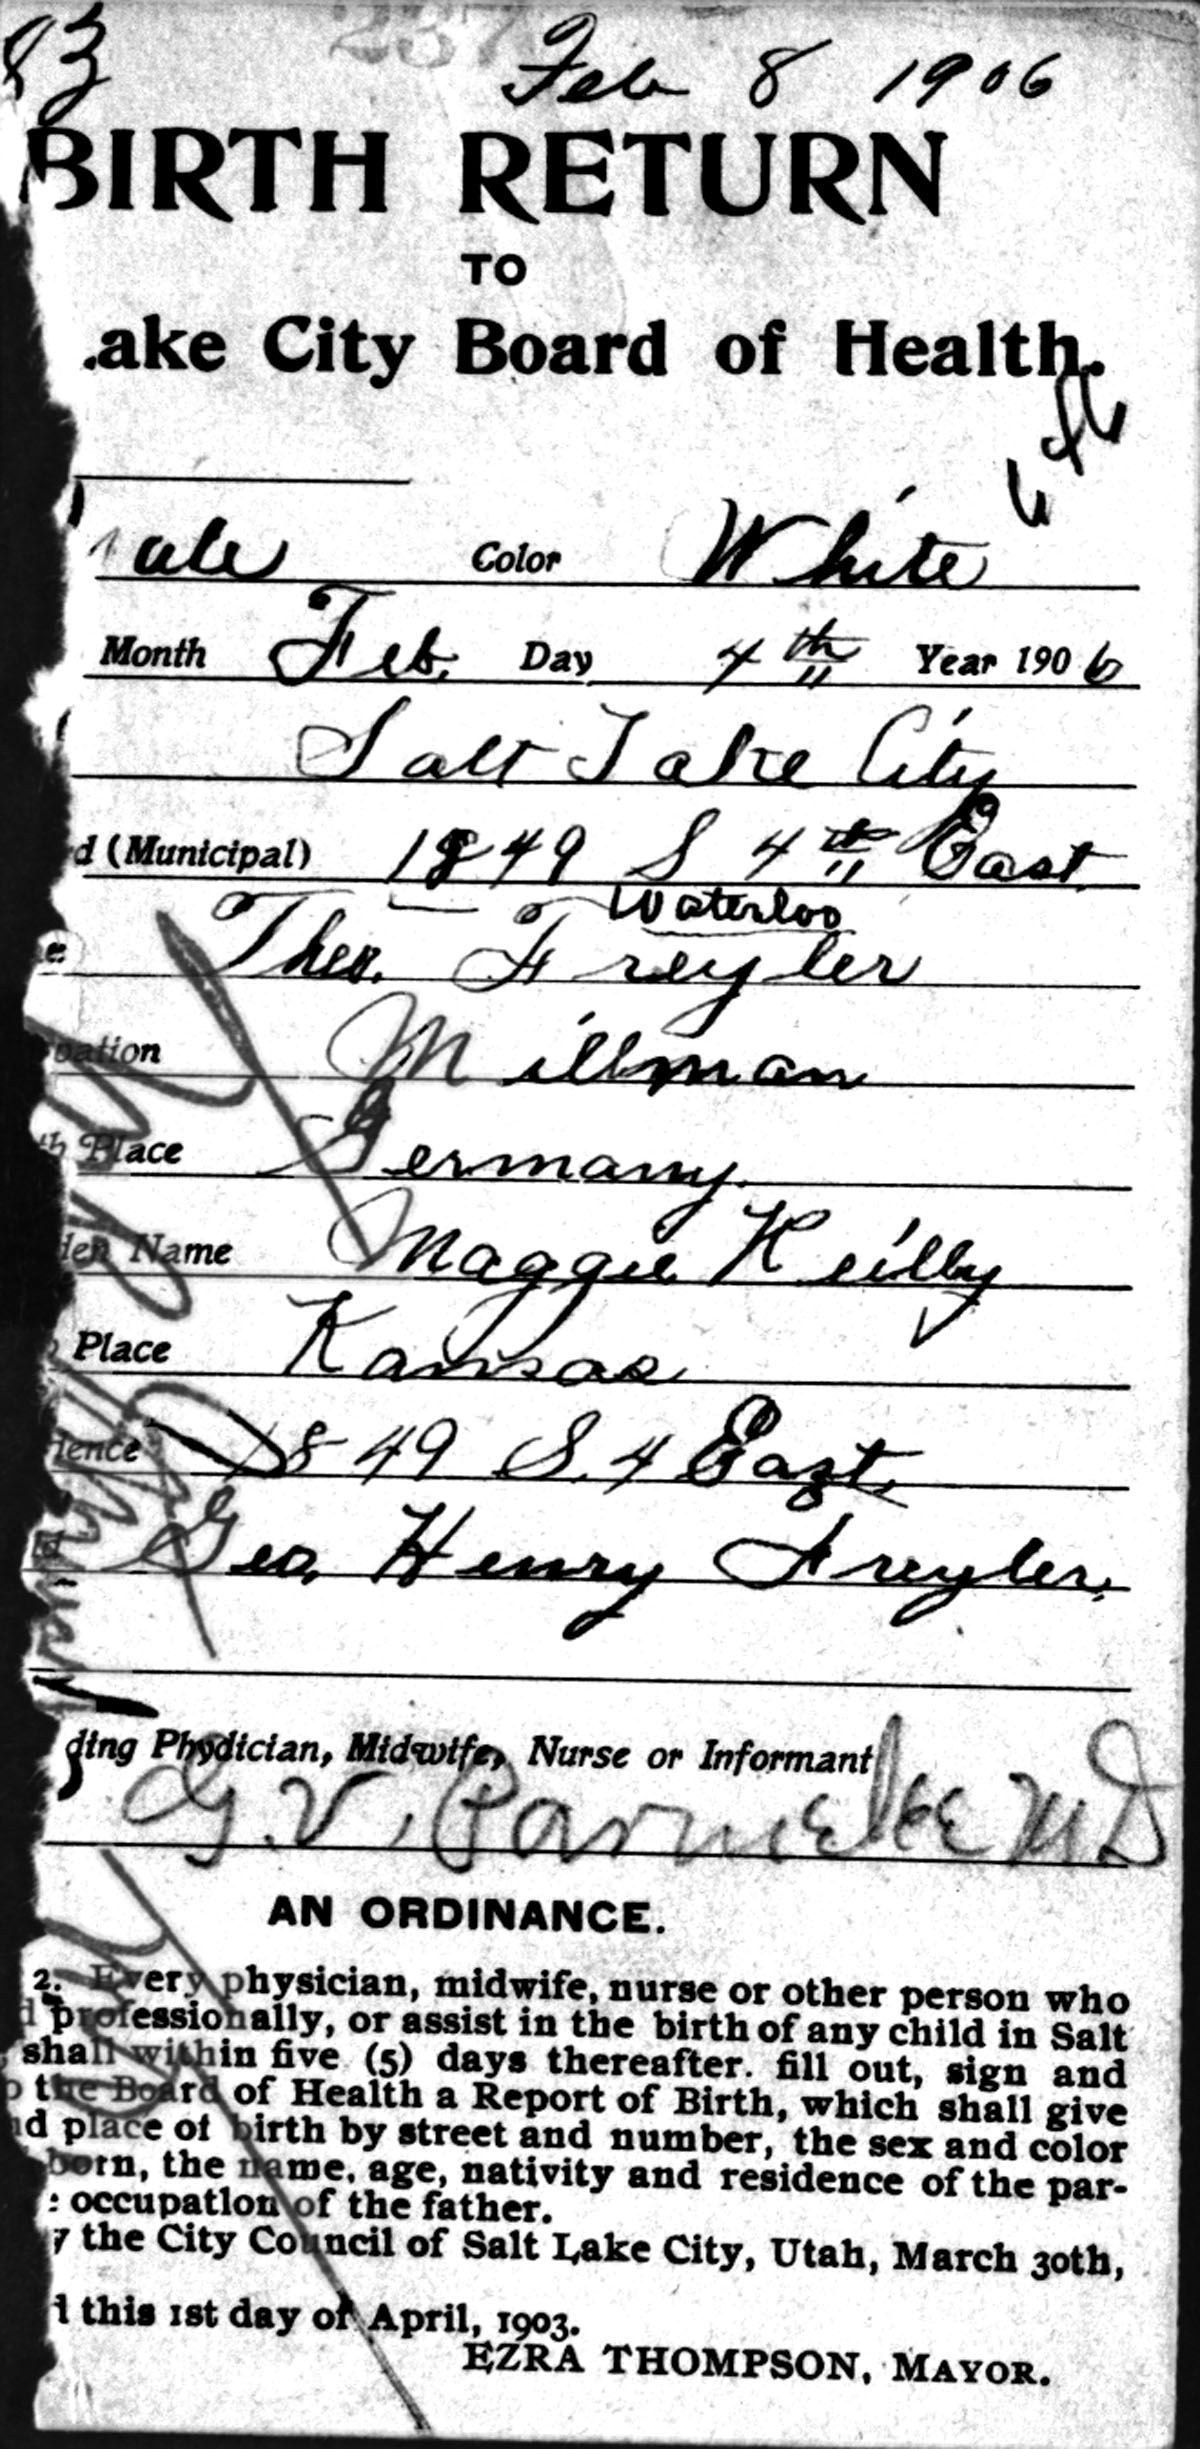 83
237
Feb 8 1906
BIRTH RETURN
TO
ake City Board of Health.
ale Color White
Month Feb. Day 4th Year 1906
Salt Lake City
d (Municipal) 1849 S 4th East
Waterloo
e Theo. Freyler
pation Millman
th Place Germany.
den Name Maggie Reilly
Place Kansas
dence 1849 S. 4 East.
d Geo. Henry Freyler.
ding Physician, Midwife, Nurse or Informant
G. V. Parmelee MD
AN ORDINANCE.
2. Every physician, midwife, nurse or other person who
d professionally, or assist in the birth of any child in Salt
, shall within five (5) days thereafter. fill out, sign and
o the Board of Health a Report of Birth, which shall give
nd place of birth by street and number, the sex and color
born, the name, age, nativity and residence of the par-
e occupation of the father.
y the City Council of Salt Lake City, Utah, March 30th,
d this 1st day of April, 1903.
EZRA THOMPSON, MAYOR.